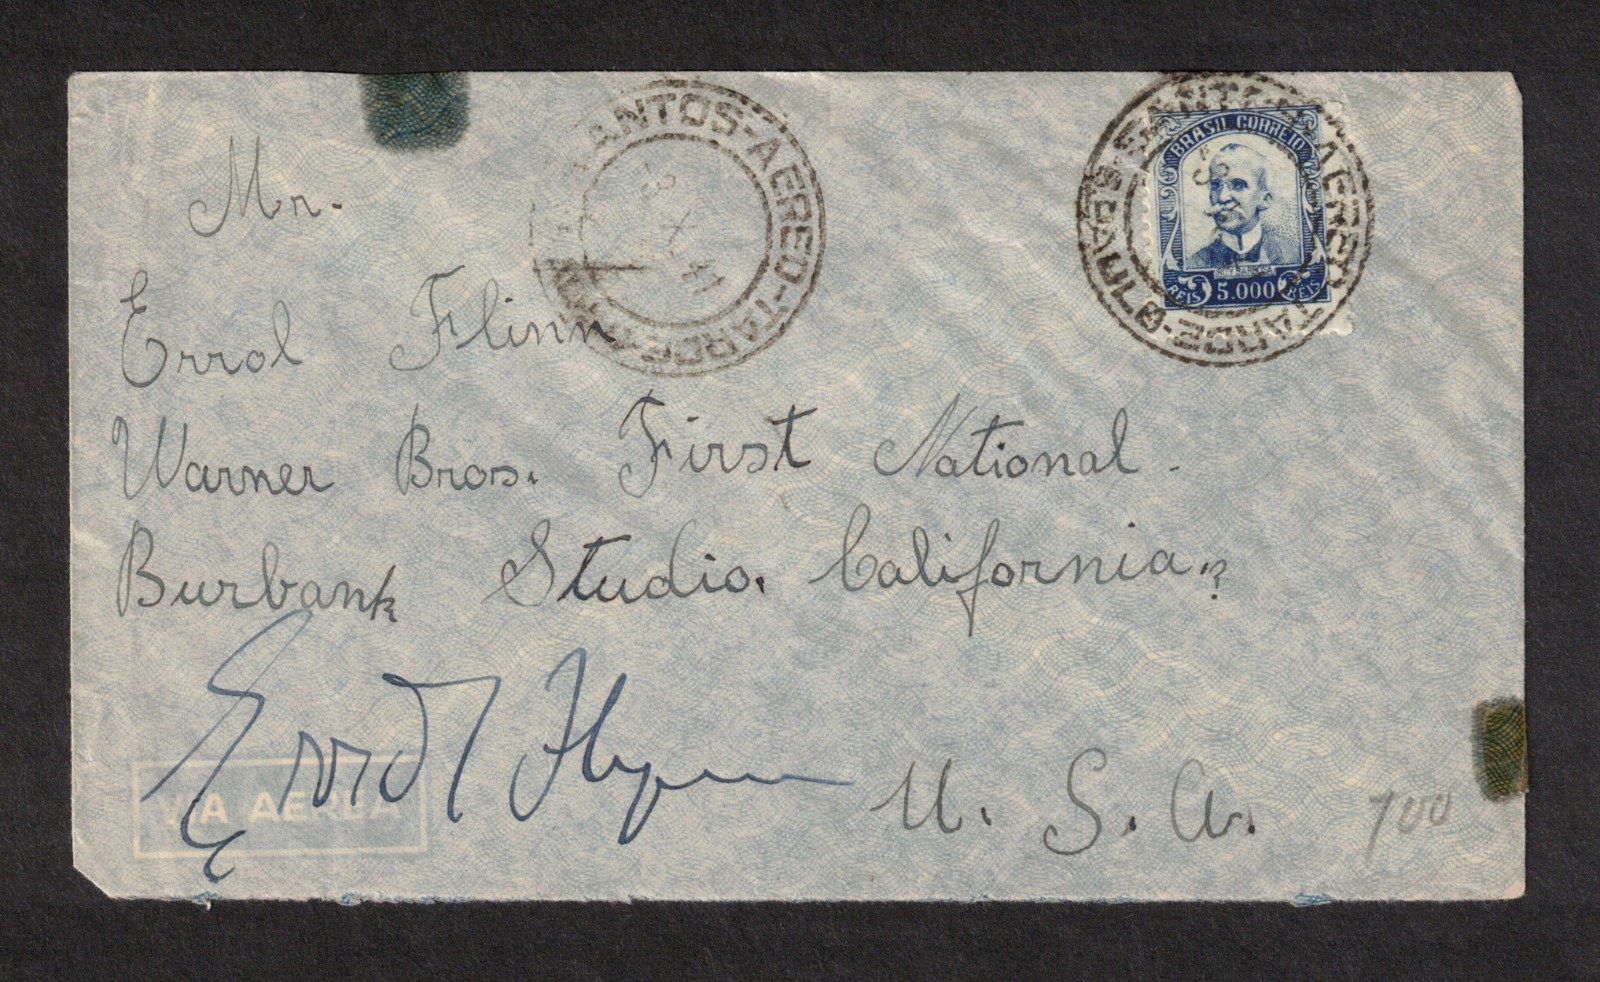 SANTOS-AEREO-TARDE
3 X 41
SANTOS-AEREO-TARDE-S.PAULO
BRASIL CORREIO
RUY BARBOSA
REIS 5.000 REIS
Mr.
Errol Flinn
Warner Bros. First National -
Burbank Studio. California.
Errol Flynn
VIA AEREA
U. S. A.
700